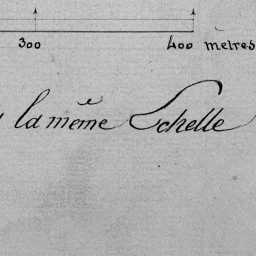 300 400 mètres
la même Echelle